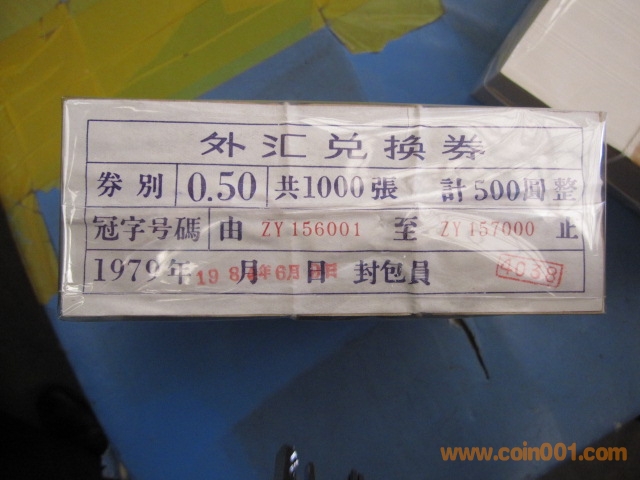 外汇兑换券
券別 0.50 共1000張 計500圓整
冠字号碼 由 ZY 156001 至 ZY 157000 止
1979年 月 日 封包員 4038
www.coin001.com